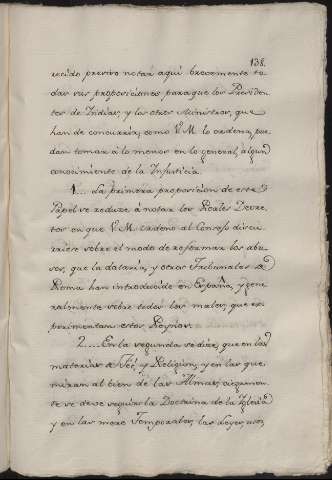 138.
recido preciso notar aquí brevemente to-
das sus proposiciones para que los Presiden-
tes de Indias, y los otros Ministros, que
han de concurrir, como V. M. lo ordena, pue-
dan tomar á lo menos en lo general, algun
conocimiento de la Justicia.
1... La primera proposicion de este
Papel se reduce á notar los Reales Decre-
tos en que V. M. ordenó al Consejo discu-
rriese sobre el modo de reformar los abu-
sos, que la dataría, y otros Tribunales de
Roma han introducido en España, y gene-
ralmente sobre todos los males, que ex-
perimentan estos Reynos.
2... En la segunda se dice, que en las
materias de Feé, y Religion, y en las que
miran al bien de las Almas, ciegamen-
te se deve seguir la Doctrina de la Iglesia
y en las mere Temporales, las Leyes, usos,